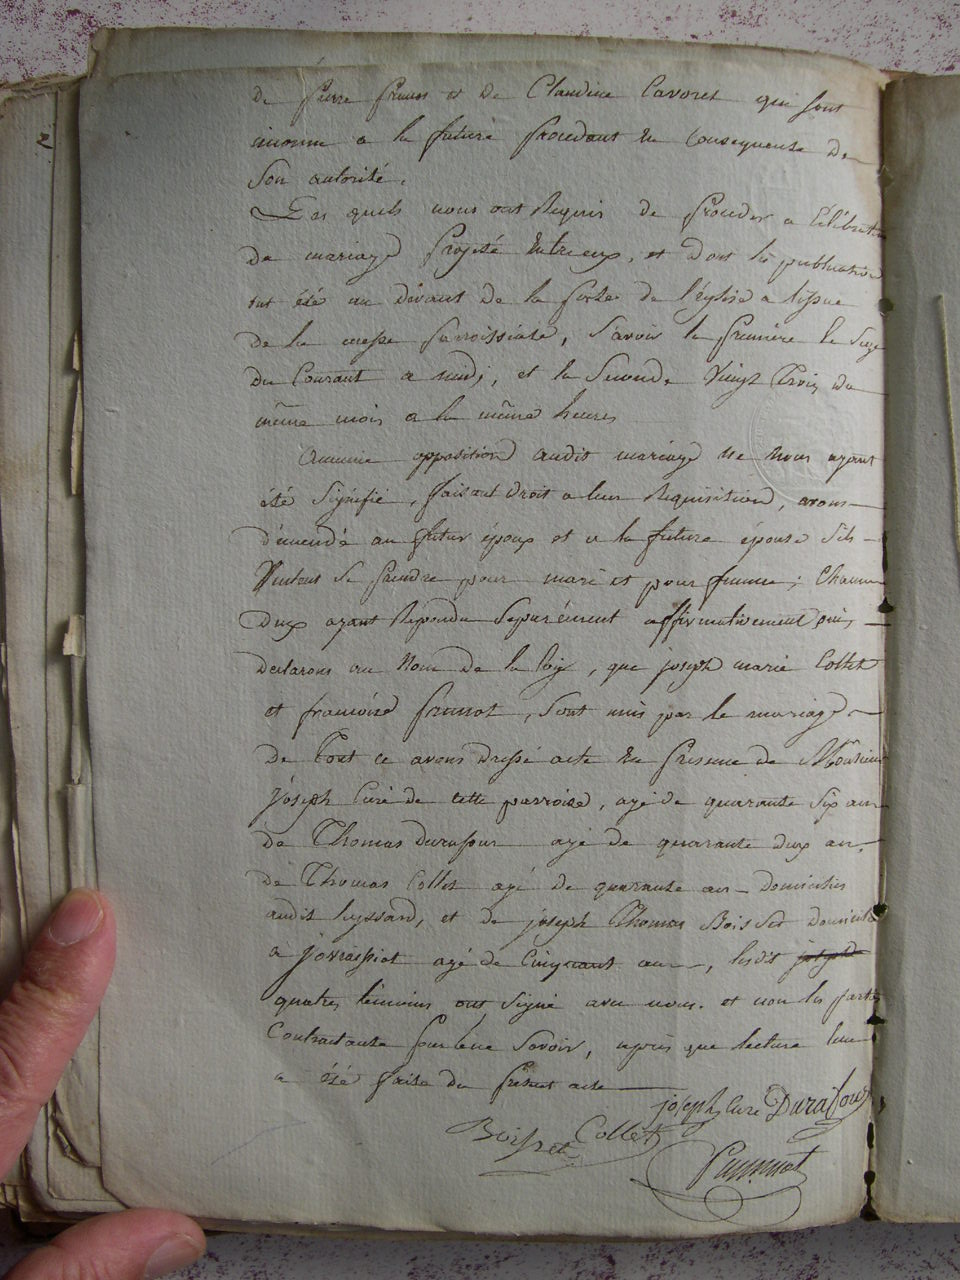 2
de pierre prunot et de Claudine Cavoret qui sont
inconnu a la future procedant en Consequense de
Son autorité.
Les quels nous ont Requis de proceder a Célébration
du mariage Projeté Entreux, et Dont les publication
ont été au devant de la porte de l'église a lissue
de la messe parroissiale, Savoir la première le Seize
du Courant a midi, et la Seconde Vingt Trois du
même mois a la même heure
Aucune opposition audit mariage ne Nous ayant
été Signifié, faisant droit a leur Requisition, avons
démendé au futur époux et a la future épouse Sils
Veulent Se prendre pour mari et pour femme; Chacun
Deux ayant Répondu Séparément affirmativement oui,
declarons au Nom de la loix, que joseph marie Collet
et francoise prunot, Sont unis par le mariage
de Tout ce avons dressé acte En presence de Monsieur
joseph Curé de cette parroise, agé de quarante Six ans
de Thomas durafour agé de quarante deux ans.
de Thomas Collet agé de quarante ans Domiciliés
audit leyssard, et de joseph Thomas Boisset domicilié
à agé de Cinquant ans, lesdit joseph
quatres témoins ont Signé avec nous. et non les parties
Contractante pour le Savoir, après que lecture leur
a été faite du présent acte
joseph Cure Durafour
Boisset Collet